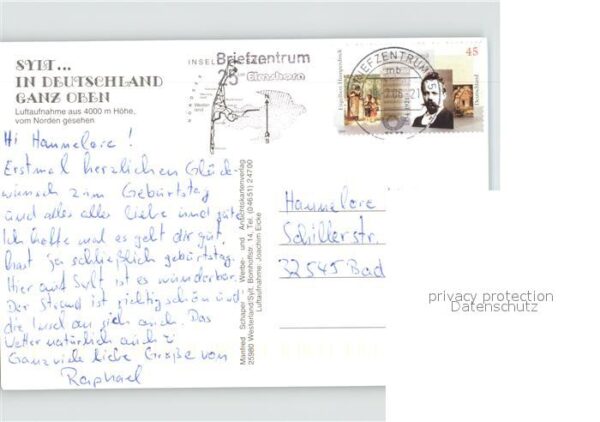 SYLT...
IN DEUTSCHLAND
GANZ OBEN
Luftaufnahme aus 4000 m Höhe,
vom Norden gesehen
Hi Hannelore!
Erstmal herzlichen Glück-
wunsch zum Geburtstag
und alles alles liebe und gute
Ich hoffe mal es geht dir gut,
hast ja schließlich geburtstag.
Hier auf Sylt ist es wunderbar.
Der Strand ist richtig schön und
die Insel an sich auch. Das
Wetter natürlich auch
Ganz viele liebe Grüße von
Raphael
INSEL
Briefzentrum
25
Elmshorn
NORDSEE
Manfred Schaper - Werbe- und Ansichtskartenverlag
25980 Westerland/Sylt, Bomhoffstr. 14, Tel. (04651) 24700
Luftaufnahme: Joachim Eicke
BRIEFZENTRUM
mb
21
Engelbert Humperdinck
45
Deutschland
Hannelore
Schillerstr.
32545 Bad
privacy protection
Datenschutz